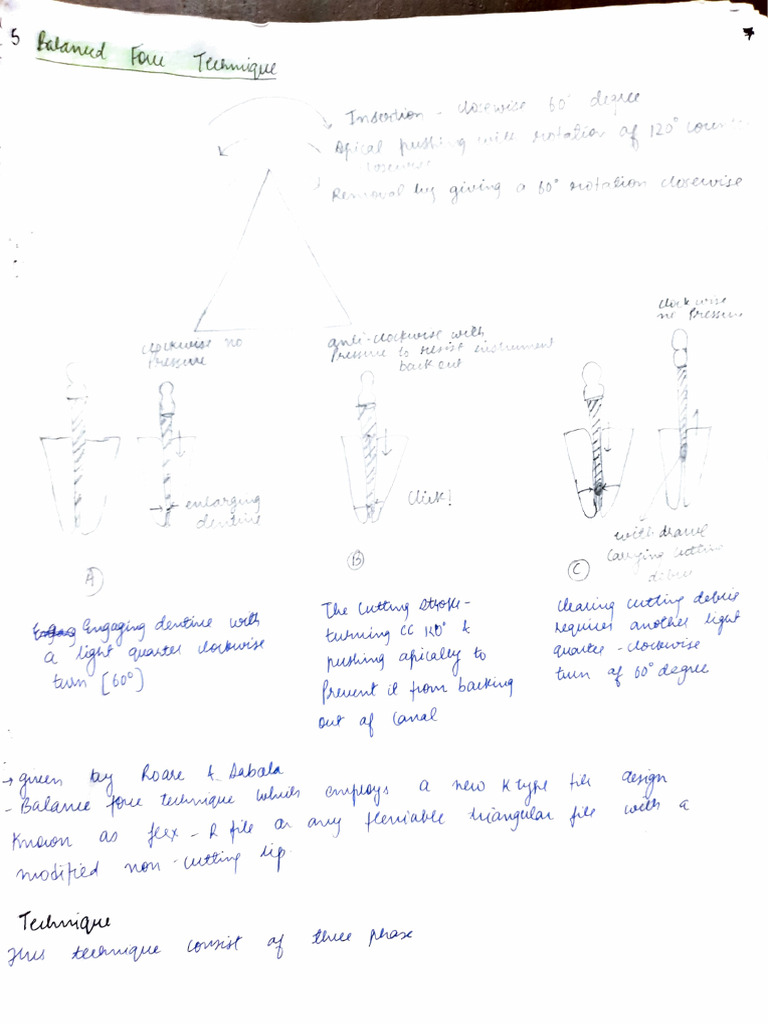 5 Balanced Force Technique
Insertion - clocewise 60° degree
Apical pushing with rotation of 120° counter
closewise
Removal by giving a 60° rotation closewise
clockwise no
Pressure
anti-clockwise with
Pressure to resist instrument
back out
clockwise
no Pressure
enlarging
dentine
Click!
withdrawl
Carrying cutting
A
B
C
Engaging dentine with
a light quarter clockwise
turn [60°]
The cutting stroke-
turning CC 120° &
pushing apically to
Prevent it from backing
out of canal
Clearing cutting debrie
requires another light
quarter-clockwise
turn of 60° degree
→ given by Roare & Sabala
- Balance force technique which employs a new K type file design
Known as flex-R file or any flexiable triangular file with a
modified non-cutting tip.
Technique
This technique consist of three phase